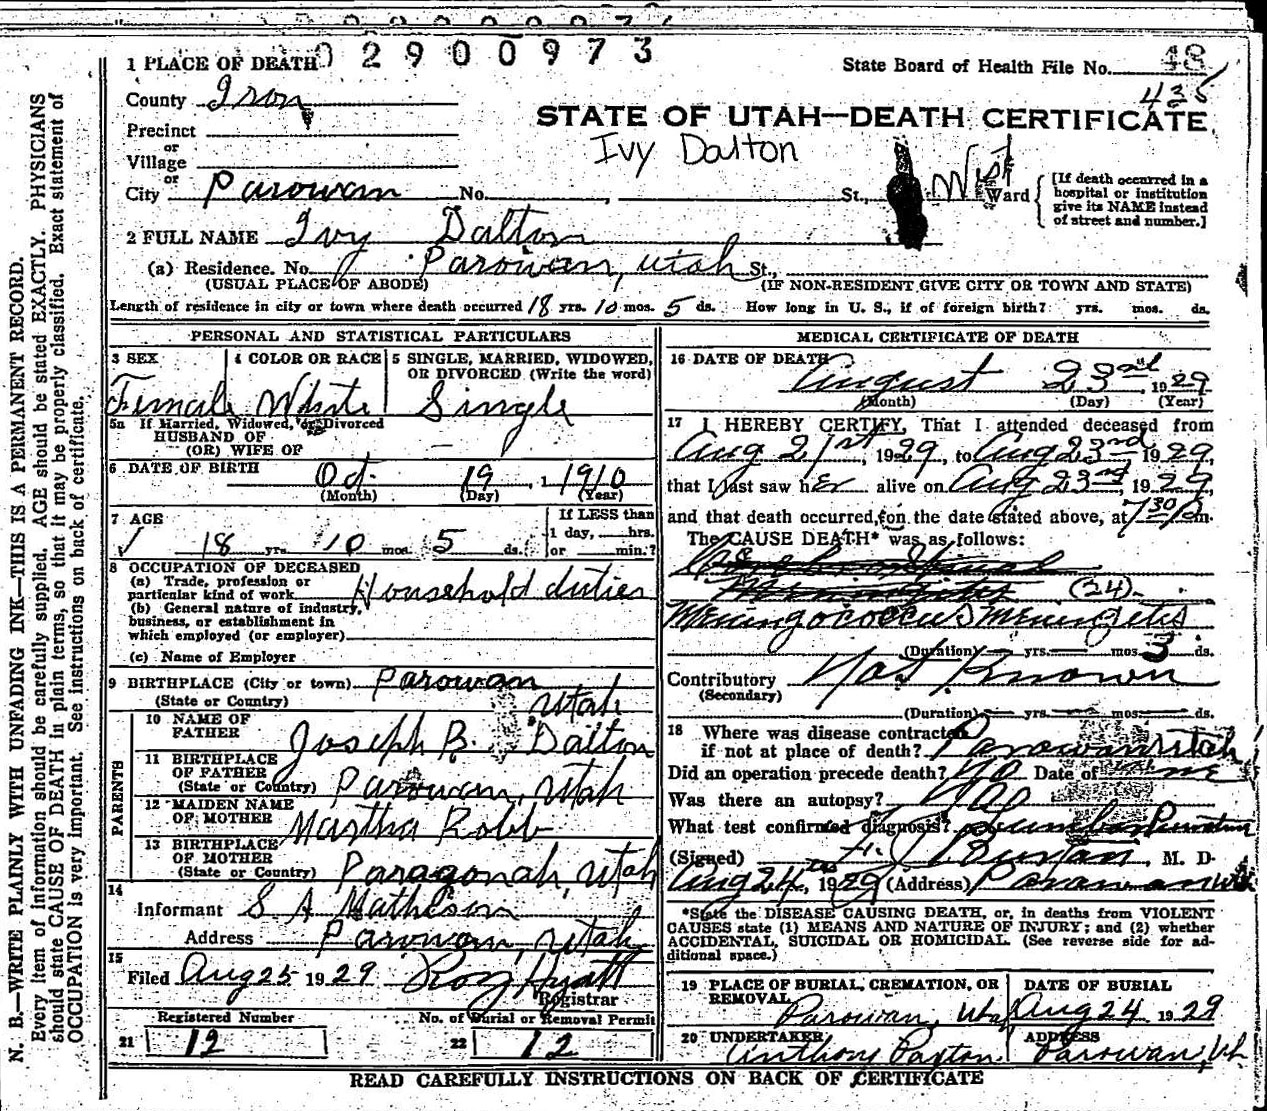 02900973
1 PLACE OF DEATH
State Board of Health File No. 48
435
County Iron
STATE OF UTAH—DEATH CERTIFICATE
Precinct
or
Village
Ivy Dalton
or
City Parowan No. , St., West Ward
[If death occurred in a hospital or institution give its NAME instead of street and number.]
2 FULL NAME Ivy Dalton
(a) Residence. No. Parowan, Utah St.,
(USUAL PLACE OF ABODE) (IF NON-RESIDENT GIVE CITY OR TOWN AND STATE)
Length of residence in city or town where death occurred 18 yrs. 10 mos. 5 ds. How long in U. S., if of foreign birth? yrs. mos. ds.
PERSONAL AND STATISTICAL PARTICULARS
3 SEX 4 COLOR OR RACE 5 SINGLE, MARRIED, WIDOWED, OR DIVORCED (Write the word)
Female White Single
5a If Married, Widowed, or Divorced
HUSBAND OF
(OR) WIFE OF —
6 DATE OF BIRTH Oct. 19, 1910
(Month) (Day) (Year)
7 AGE
18 yrs. 10 mos. 5 ds.
If LESS than
1 day, hrs.
or min.?
8 OCCUPATION OF DECEASED
(a) Trade, profession or
particular kind of work Household duties
(b) General nature of industry,
business, or establishment in
which employed (or employer)
(c) Name of Employer
9 BIRTHPLACE (City or town) Parowan
(State or Country) Utah
PARENTS
10 NAME OF
FATHER Joseph B. Dalton
11 BIRTHPLACE
OF FATHER
(State or Country) Parowan, Utah
12 MAIDEN NAME
OF MOTHER Martha Robb
13 BIRTHPLACE
OF MOTHER
(State or Country) Paragonah, Utah
14
Informant S A Matheson
Address Parowan, Utah
15
Filed Aug 25 1929 Roy Hyatt
Registrar
Registered Number No. of Burial or Removal Permit
21 12 22 12
MEDICAL CERTIFICATE OF DEATH
16 DATE OF DEATH August 23rd 1929
(Month) (Day) (Year)
17 I HEREBY CERTIFY, That I attended deceased from
Aug 21st, 1929, to Aug 23rd 1929,
that I last saw her alive on Aug 23rd, 1929,
and that death occurred, on the date stated above, at 7 30 P m.
The CAUSE DEATH* was as follows:
Meningitis (24)
Meningococcus Meningitis
(Duration) — yrs. — mos. 3 ds.
Contributory Not Known
(Secondary)
(Duration) — yrs. — mos. — ds.
18 Where was disease contracted
if not at place of death? Parowan Utah
Did an operation precede death? No Date of
Was there an autopsy? No
What test confirmed diagnosis? Lumbar Puncture
(Signed) J Burton, M. D.
Aug 24, 1929 (Address) Parowan
*State the DISEASE CAUSING DEATH, or, in deaths from VIOLENT
CAUSES state (1) MEANS AND NATURE OF INJURY; and (2) whether
ACCIDENTAL, SUICIDAL OR HOMICIDAL. (See reverse side for ad-
ditional space.)
19 PLACE OF BURIAL, CREMATION, OR REMOVAL DATE OF BURIAL
Parowan, Utah Aug 24 1929
20 UNDERTAKER ADDRESS
Anthony Paxton Parowan, Ut.
READ CAREFULLY INSTRUCTIONS ON BACK OF CERTIFICATE
N. B.—WRITE PLAINLY WITH UNFADING INK—THIS IS A PERMANENT RECORD.
Every item of information should be carefully supplied. AGE should be stated EXACTLY. PHYSICIANS
should state CAUSE OF DEATH in plain terms, so that it may be properly classified. Exact statement of
OCCUPATION is very important. See instructions on back of certificate.